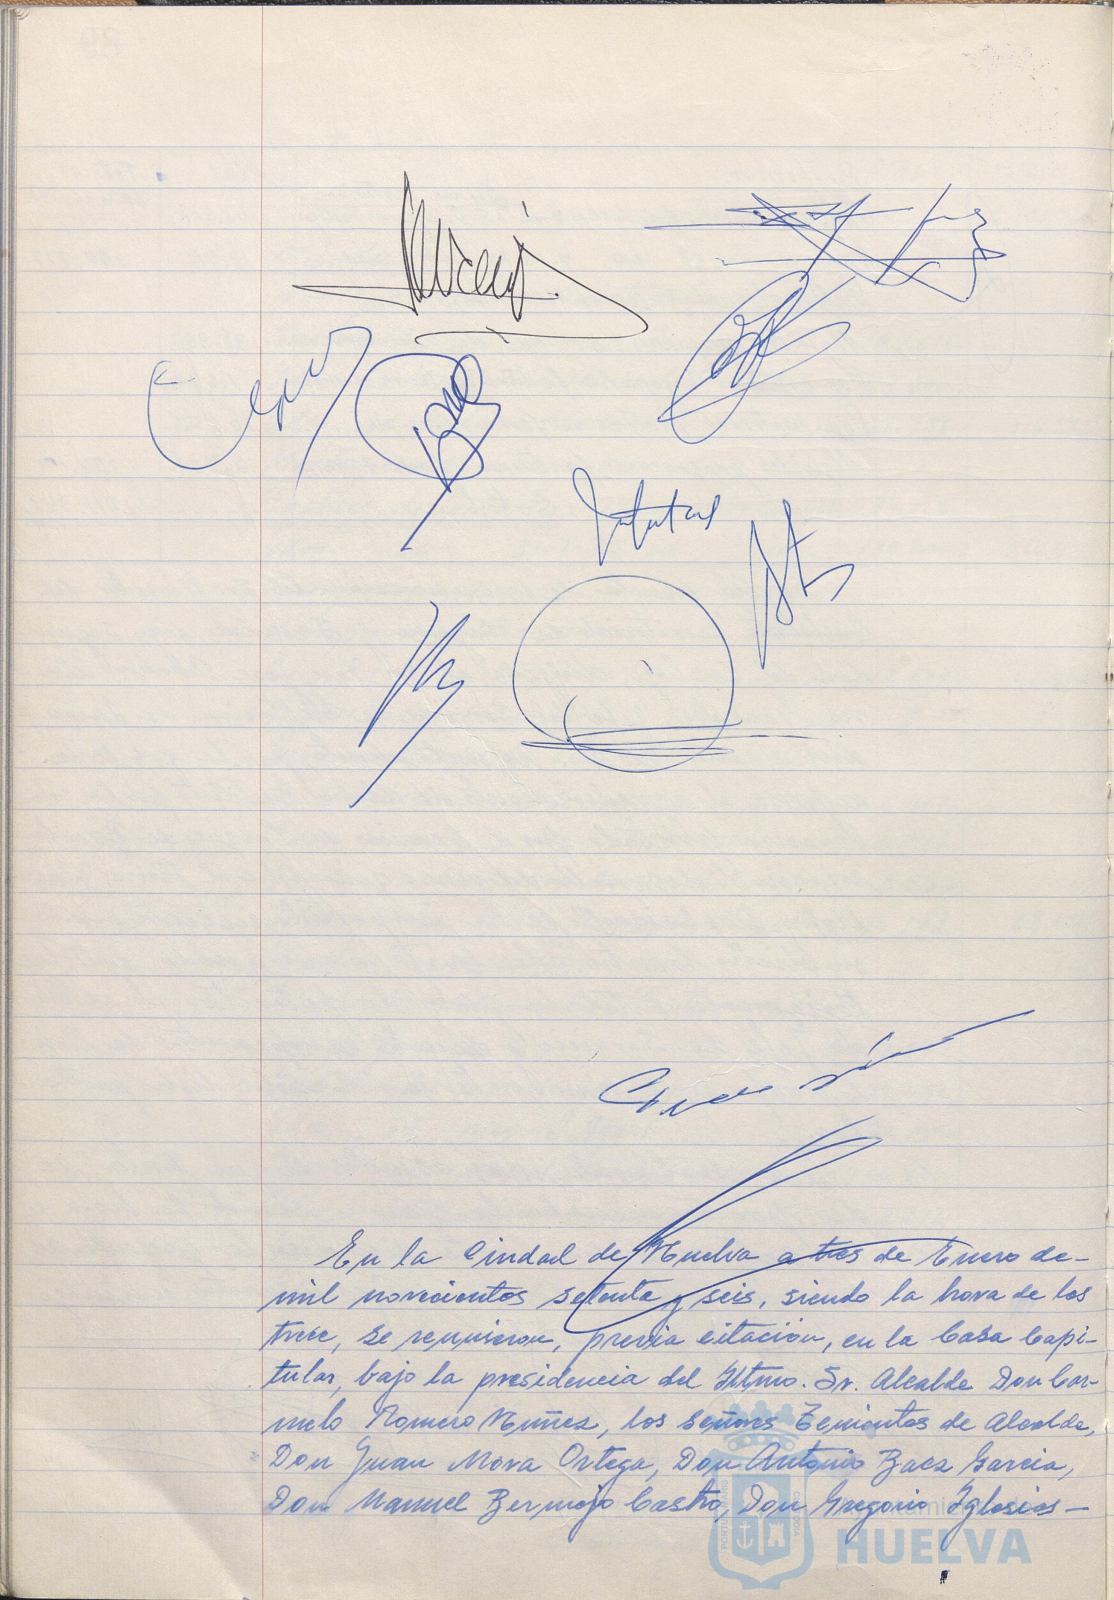 En la Ciudad de Huelva a tres de Enero de-
mil novecientos setenta y seis, siendo la hora de las
trece, se reunieron, previa citación, en la Casa Capi-
tular, bajo la presidencia del Iltmo. Sr. Alcalde Don Car-
melo Romero Núñez, los señores Tenientes de Alcalde,
Don Juan Mora Ortega, Don Antonio Baez Garcia,
Don Manuel Bermejo Castro, Don Gregorio Iglesias-
HUELVA